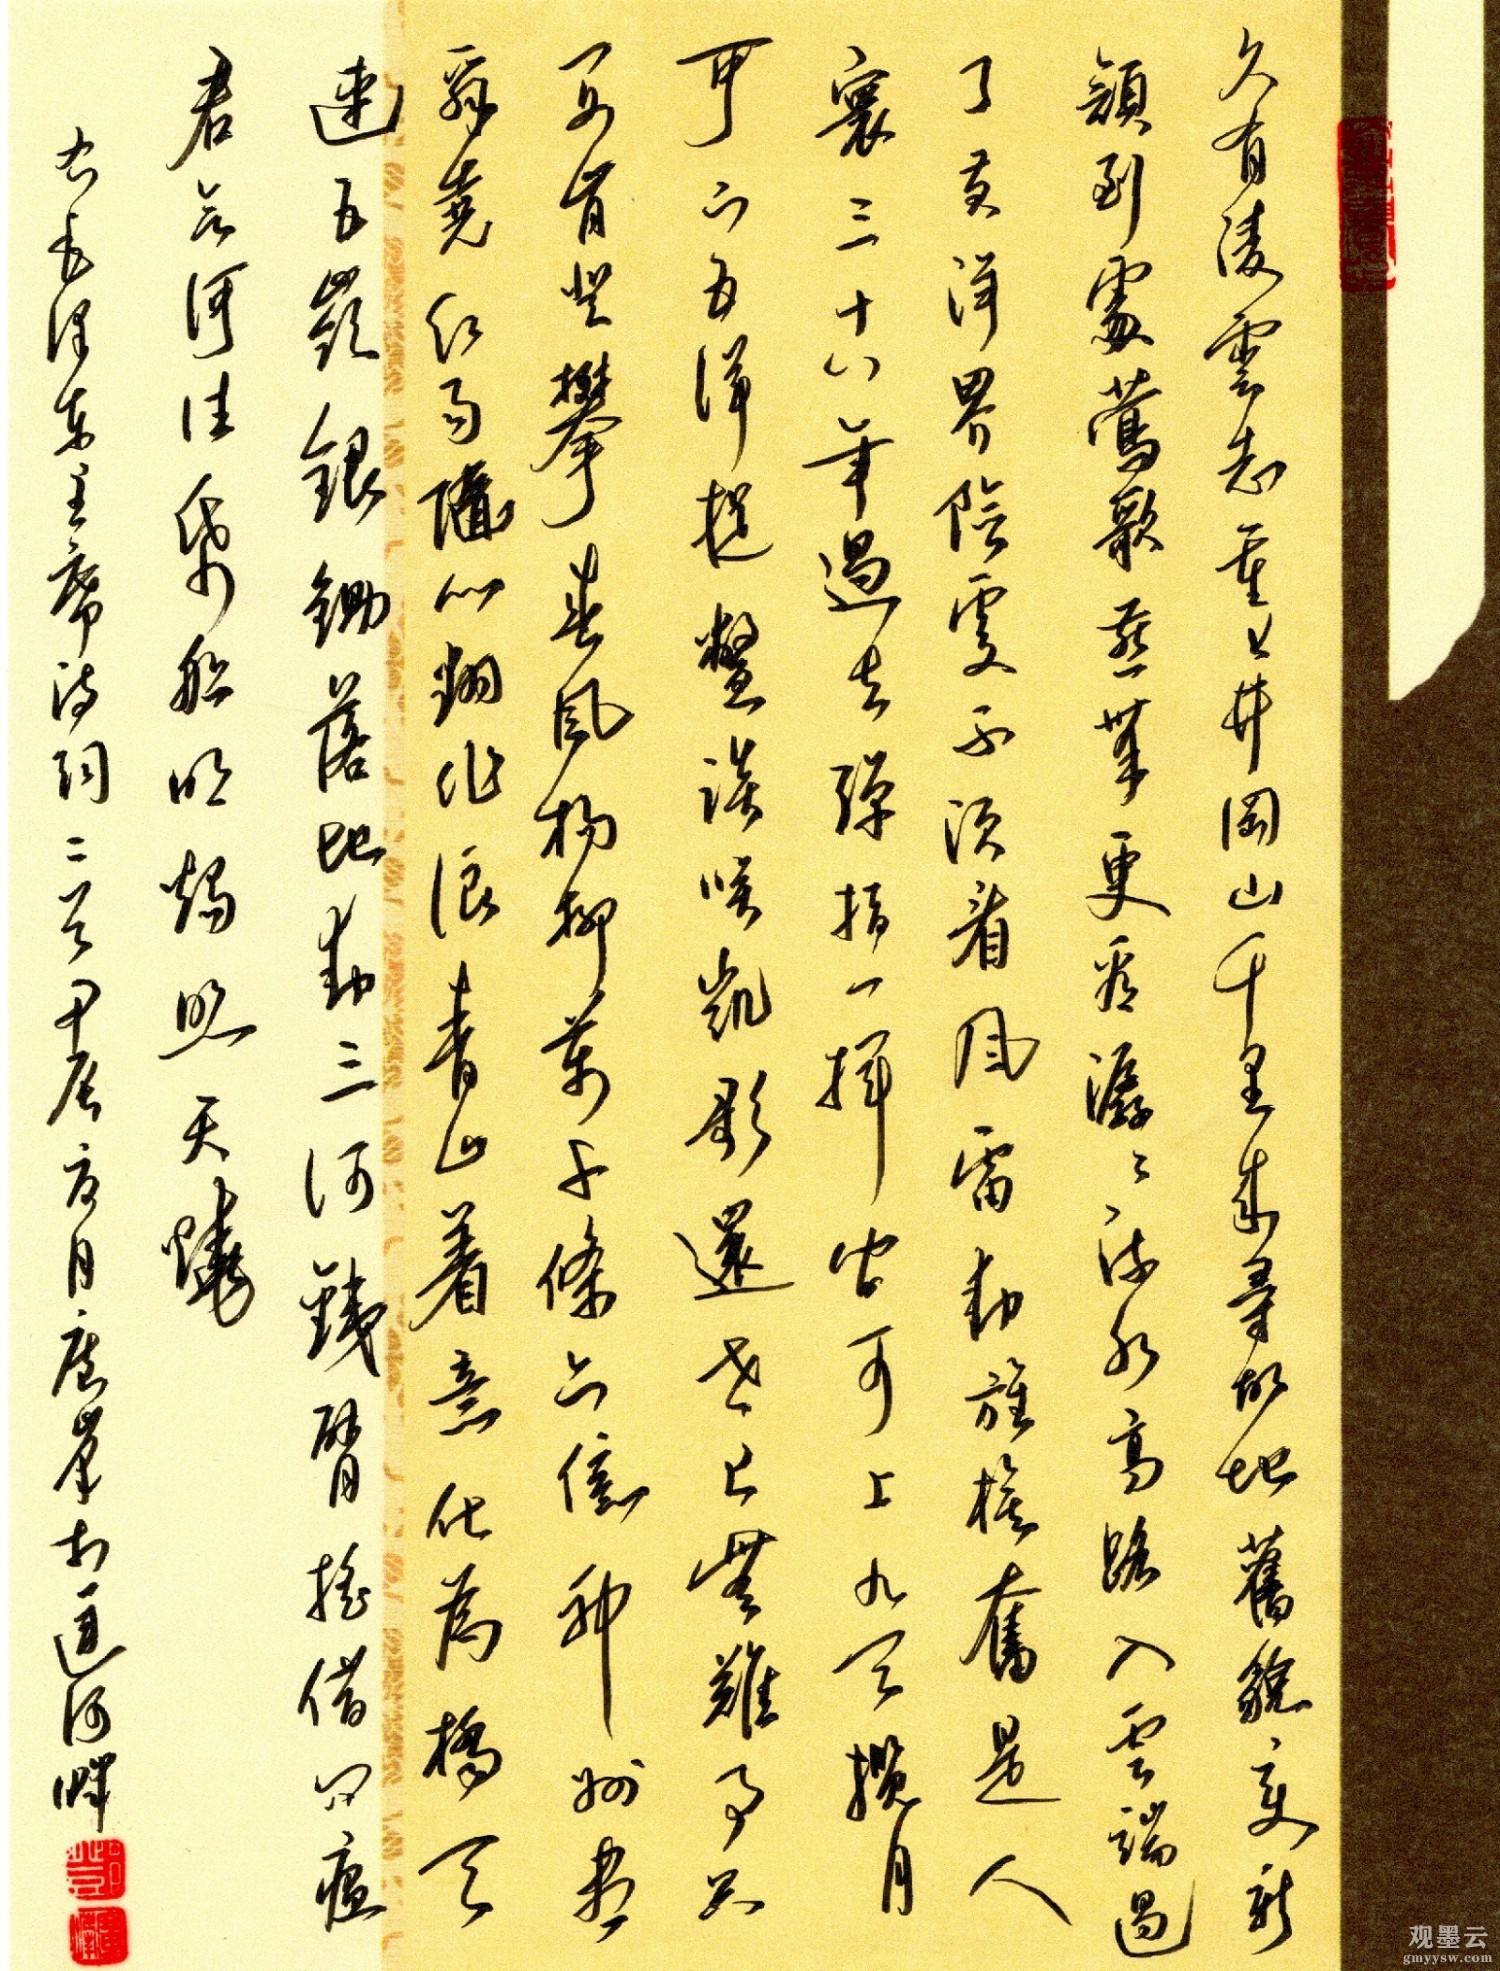 久有凌雲志重上井岡山千里來尋故地舊貌變新
顏到處鶯歌燕舞更有潺潺流水高路入雲端過
了黃洋界險處不須看風雷動旌旗奮是人
寰三十八年過去彈指一揮間可上九天攬月
可下五洋捉鱉談笑凱歌還世上無難事只
要肯登攀春風楊柳萬千條六億神州盡
舜堯紅雨隨心翻作浪青山着意化為橋天
連五嶺銀鋤落地動三河鐵臂搖借問瘟
君欲何往紙船明燭照天燒
右毛澤東主席詩詞二首甲辰夏月於河畔
观墨云
gmyysw.com